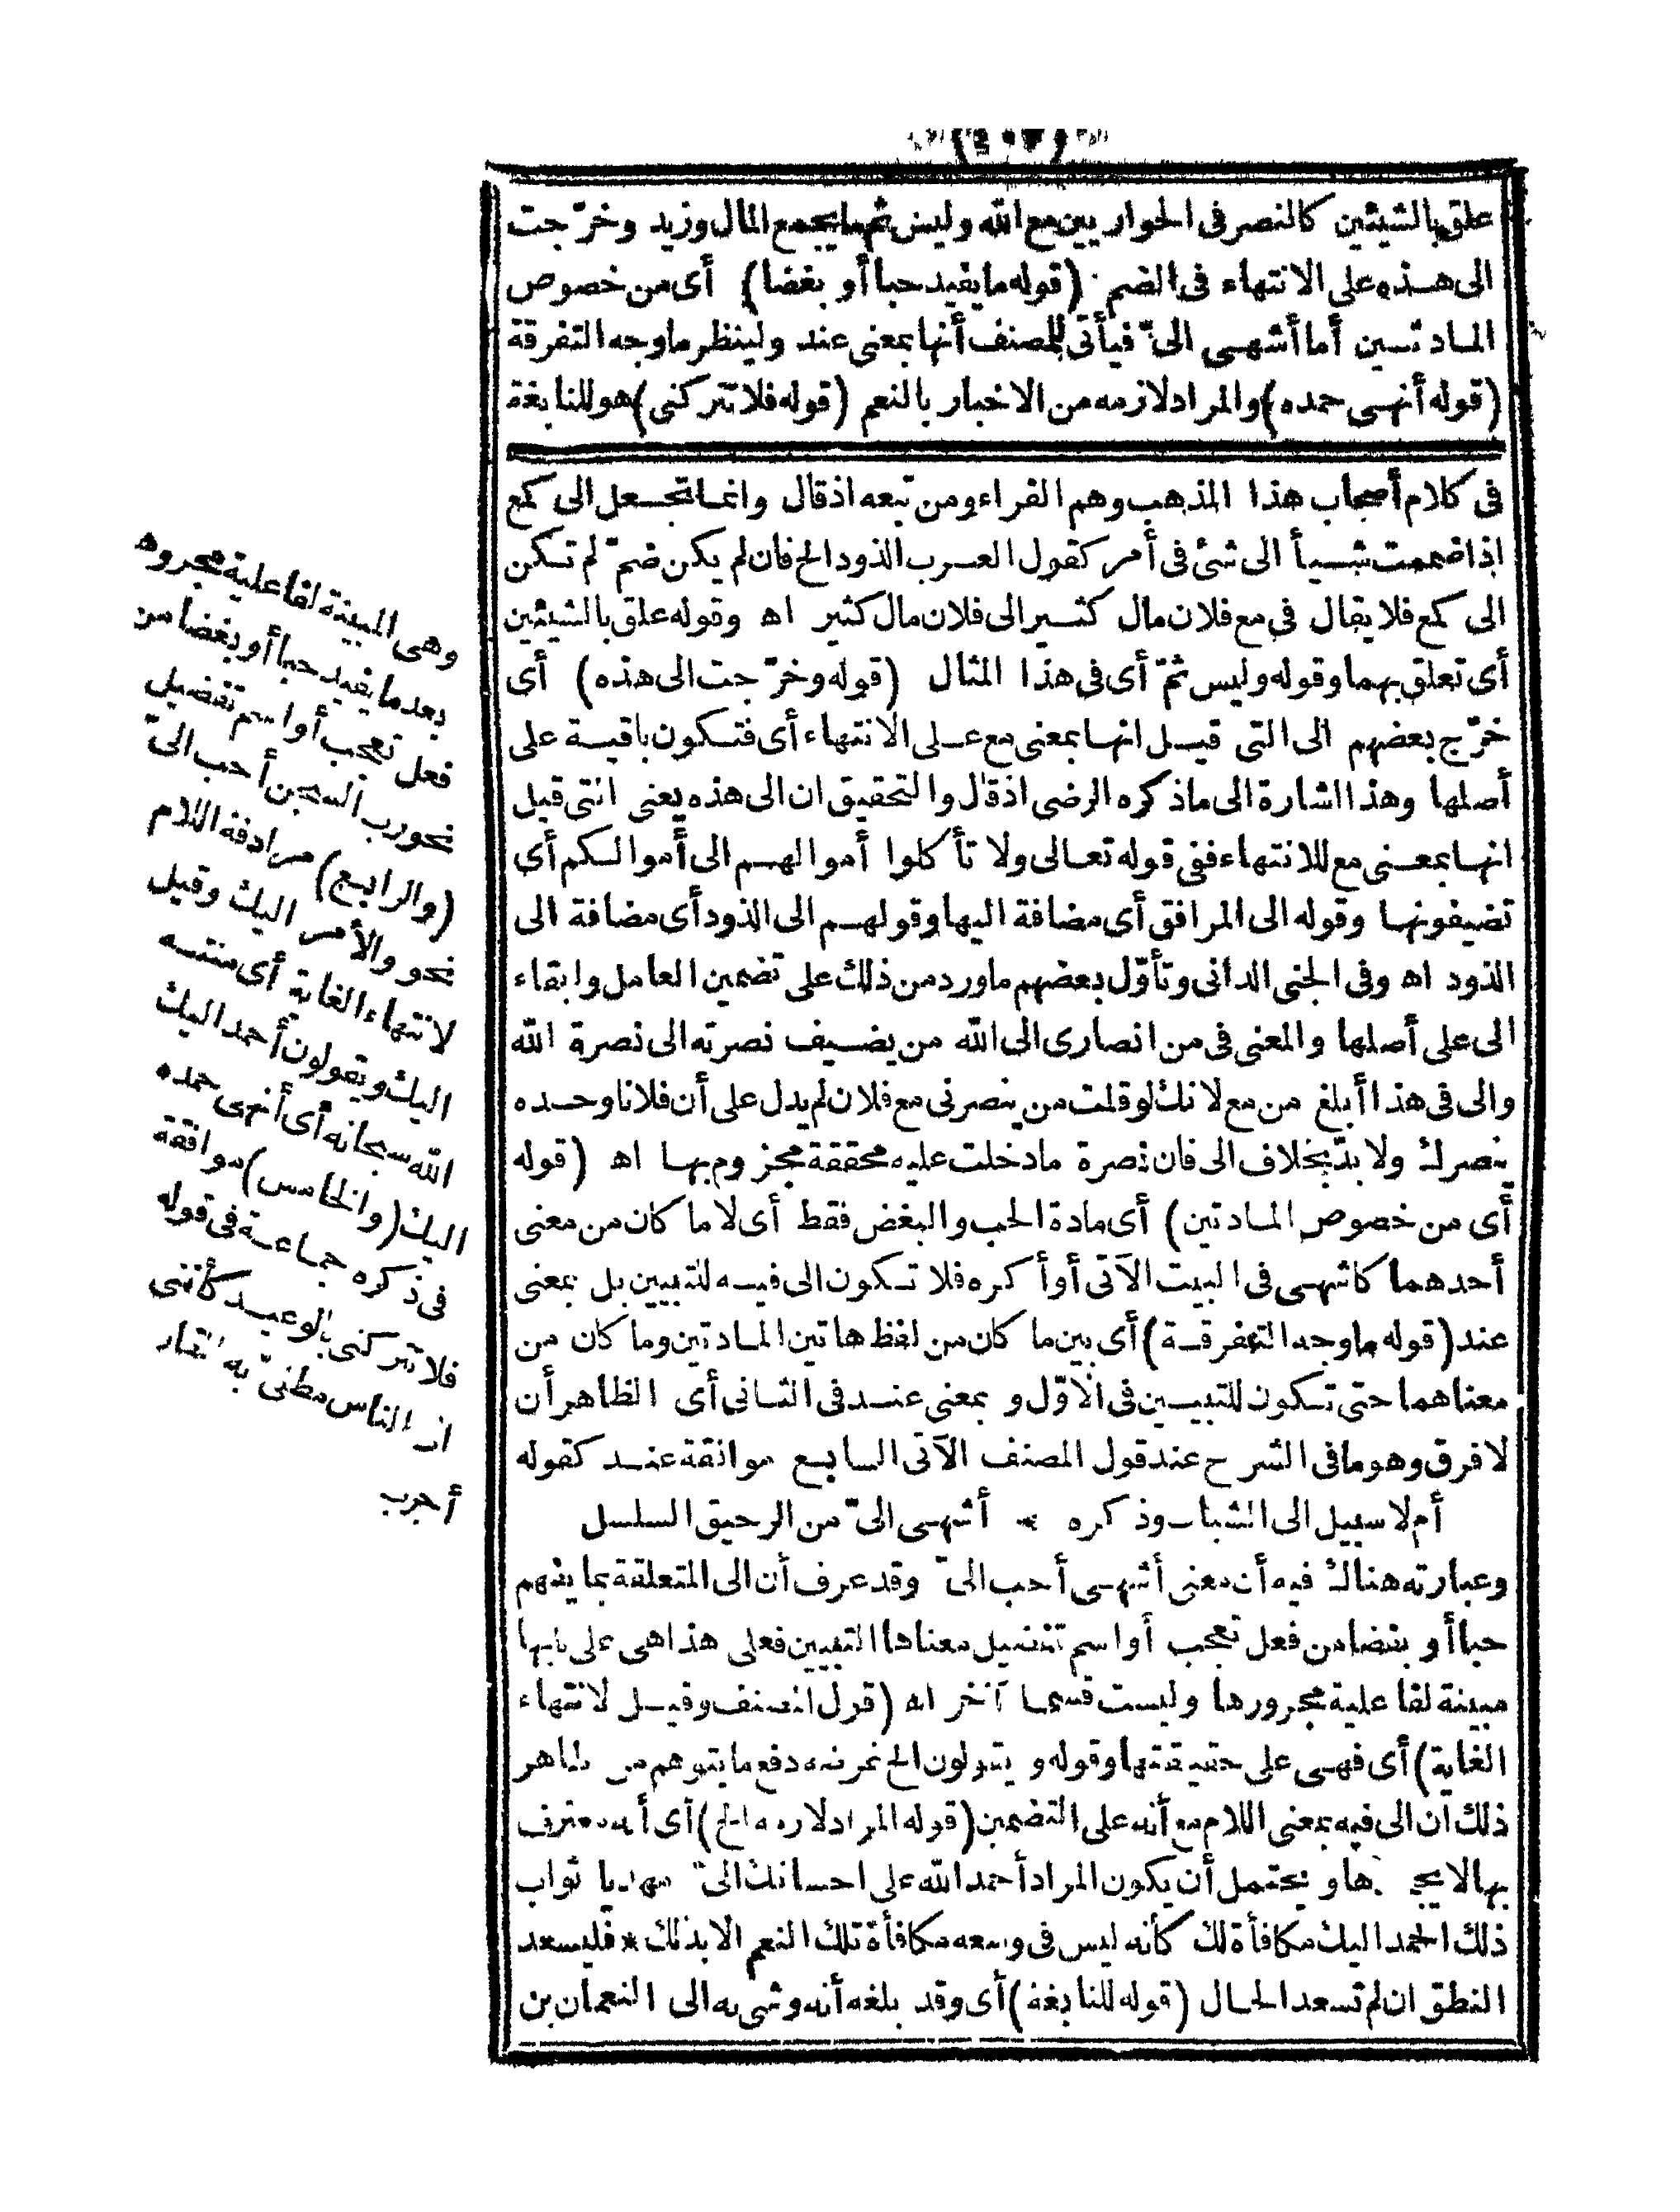 علق بالشيئين كالنصر فى الحواريين مع الله وليس ثم ما يجمع المال وزيد وخرّجت
الى هذه على الانتهاء فى الضم (قوله ما يفيد حبا أو بغضا) أى من خصوص
المادتين أما أشهى الىّ فيأتى للمصنف أنها بمعنى عند ولينظر ما وجه التفرقة
(قوله أنهى حمده) والمراد لازمه من الاخبار بالنعم (قوله فلا تتركنى) هو للنابغة
فى كلام أصحاب هذا المذهب وهم الفراء ومن تبعه اذ قال وانما تجعل الى كمع
اذا ضممت شيأ الى شئ فى أمر كقول العرب الذود الخ فان لم يكن ضمّ لم تكن
الى كمع فلا يقال فى مع فلان مال كثير الى فلان مال كثير اه وقوله علق بالشيئين
أى تعلق بهما وقوله وليس ثمّ أى فى هذا المثال (قوله وخرّجت الى هذه) أى
خرّج بعضهم الى التى قيل انها بمعنى مع على الانتهاء أى فتكون باقية على
أصلها وهذا اشارة الى ما ذكره الرضى اذ قال والتحقيق ان الى هذه يعنى التى قيل
انها بمعنى مع للانتهاء ففى قوله تعالى ولا تأكلوا أموالهم الى أموالكم أى
تضيفونها وقوله الى المرافق أى مضافة اليها وقولهم الى الذود أى مضافة الى
الذود اه وفى الجنى الدانى وتأوّل بعضهم ما ورد من ذلك على تضمين العامل وابقاء
الى على أصلها والمعنى فى من انصارى الى الله من يضيف نصرته الى نصرة الله
والى فى هذا أبلغ من مع لانك لو قلت من ينصرنى مع فلان لم يدل على أن فلانا وحده
ينصرك ولا بدّ بخلاف الى فان نصرة ما دخلت عليه محققة مجزوم بها اه (قوله
أى من خصوص المادتين) أى مادة الحب والبغض فقط أى لا ما كان من معنى
أحدهما كاشهى فى البيت الآتى أو أكره فلا تكون الى فيه للتبيين بل بمعنى
عند (قوله ما وجه التفرقة) أى بين ما كان من لفظ هاتين المادتين وما كان من
معناهما حتى تكون للتبيين فى الاوّل و بمعنى عند فى الثانى أى الظاهر أن
لا فرق وهو ما فى الشرح عند قول المصنف الآتى السابع موافقة عند كقوله
أم لا سبيل الى الشباب وذكره * أشهى الىّ من الرحيق السلسل
وعبارته هناك فيه أن معنى أشهى أحب الىّ وقد عرف أن الى المتعلقة بما يفهم
حبا أو بغضا من فعل تعجب أو اسم تفضيل معناها التبيين فعلى هذا هى على بابها
مبينة لفاعلية مجرورها وليست قسما آخر اه (قول المصنف وقيل لانتهاء
الغاية) أى فهى على حقيقتها وقوله و يقولون الخ غرضه دفع ما يتوهم من ظاهر
ذلك ان الى فيه بمعنى اللام مع أنه على التضمين (قوله المراد لازمه الخ) أى أنه معترف
بها لا ويحتمل أن يكون المراد أحمد الله على احسانك الىّ مهديا ثواب
ذلك الحمد اليك مكافأة لك كأنه ليس فى وسعه مكافأة تلك النعم الا بذلك * فليسعد
النطق ان لم تسعد الحال (قوله للنابغة) أى وقد بلغه أنه وشى به الى النعمان بن
وهى المبينة لفاعلية مجرورها
بعد ما يفيد حبا أو بغضا من
فعل تعجب أو اسم تفضيل
نحو رب السجن أحب الىّ
(والرابع) مرادفة اللام
نحو والأمر اليك وقيل
لانتهاء الغاية أى منته
اليك ويقولون أحمد اليك
الله سبحانه أى أنهى حمده
اليك (والخامس) موافقة
فى ذكره جماعة فى قوله
فلا تتركنى بالوعيد كأننى
الى الناس مطلىّ به القار
أجرب